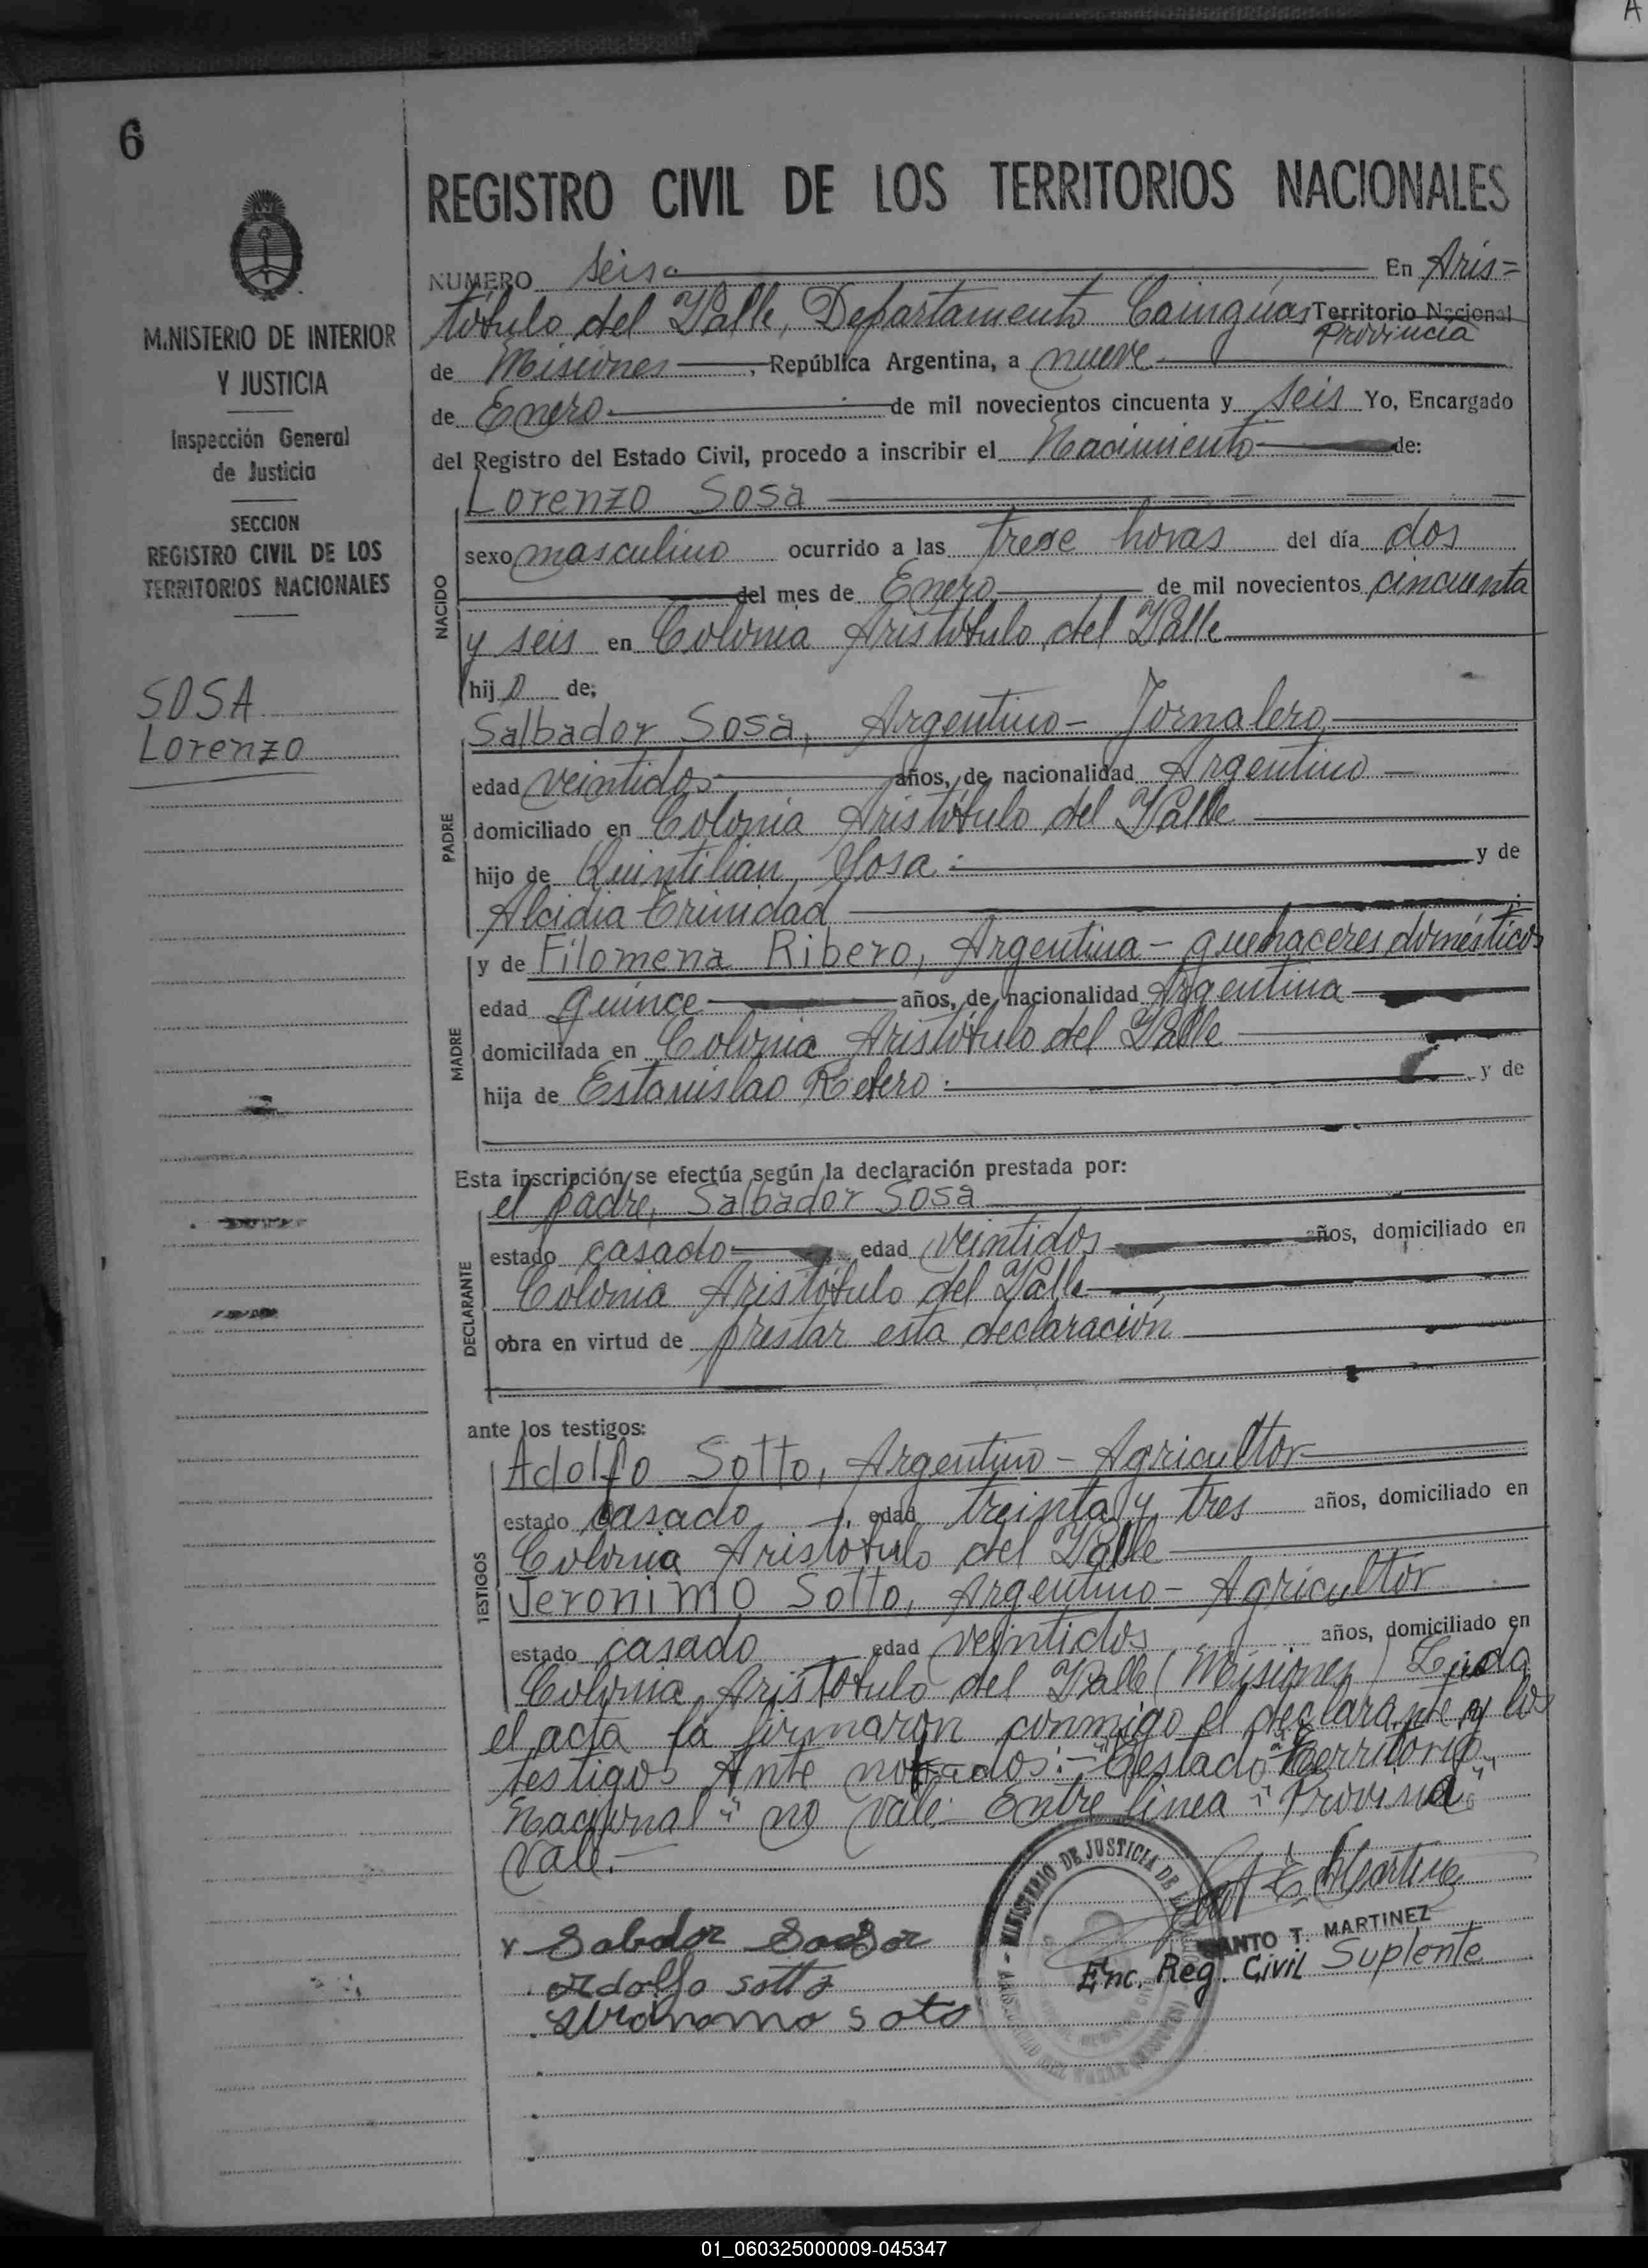 6
REGISTRO CIVIL DE LOS TERRITORIOS NACIONALES
M.NISTERIO DE INTERIOR
Y JUSTICIA
Inspección General
de Justicia
SECCION
REGISTRO CIVIL DE LOS
TERRITORIOS NACIONALES
SOSA
Lorenzo
NUMERO seis En Aris=
tóbulo del Valle, Departamento Cainguas Territorio Nacional
Provincia
de Misiones, República Argentina, a nueve
de Enero de mil novecientos cincuenta y seis Yo, Encargado
del Registro del Estado Civil, procedo a inscribir el Nacimiento de:
NACIDO
Lorenzo Sosa
sexo masculino ocurrido a las trece horas del día dos
del mes de Enero de mil novecientos cincuenta
y seis en Colonia Aristóbulo del Valle
hijo de:
PADRE
Salbador Sosa, Argentino - Jornalero
edad veintidos años, de nacionalidad Argentino
domiciliado en Colonia Aristóbulo del Valle
hijo de Quintilian Sosa y de
Alcidia Trinidad
MADRE
y de Filomena Ribero, Argentina - quehaceres domésticos
edad quince años, de nacionalidad Argentina
domiciliada en Colonia Aristóbulo del Valle
hija de Estanislao y de
Esta inscripción se efectúa según la declaración prestada por:
DECLARANTE
el padre, Salbador Sosa
estado casado edad veintidos años, domiciliado en
Colonia Aristóbulo del Valle
obra en virtud de prestar esta declaración
ante los testigos:
TESTIGOS
Adolfo Sotto, Argentino - Agricultor
estado casado, edad treinta y tres años, domiciliado en
Colonia Aristóbulo del Valle
Jeronimo Sotto, Argentino - Agricultor
estado casado edad veintidos años, domiciliado en
Colonia Aristóbulo del Valle (Misiones) Leida
el acta la firmaron conmigo el declarante y los
testigos Ante nombrados: - Testado "Territorio
Nacional" no vale. Entre linea "Provincia"
Vale.
MINISTERIO DE JUSTICIA DE
SANTO T. MARTINEZ
Enc. Reg. Civil Suplente
Adolfo sotto
soto
01_060325000009-045347